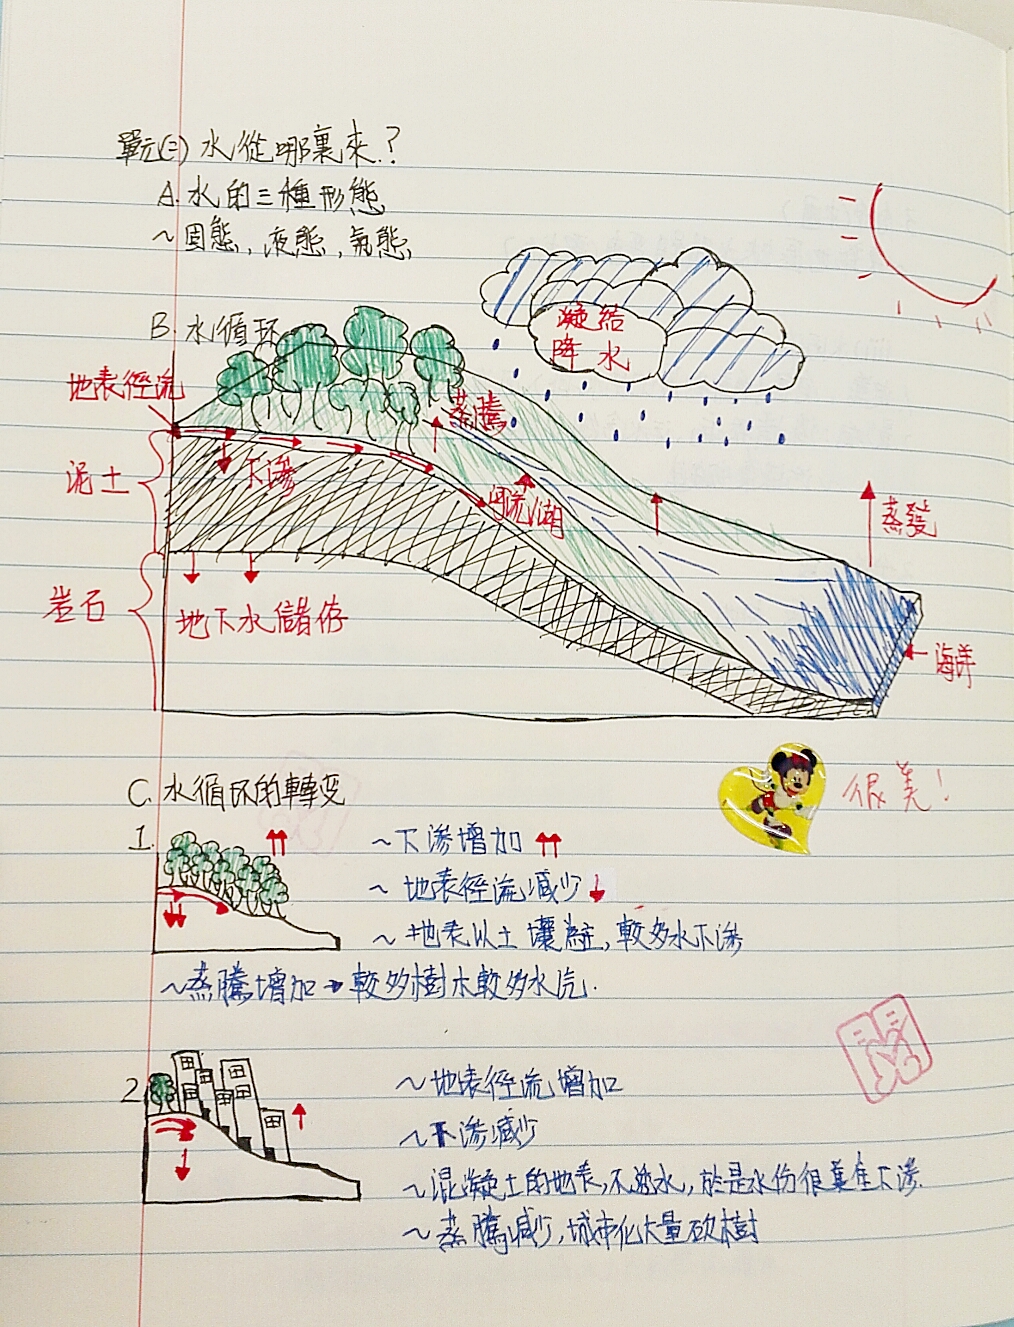 單元(三) 水從哪裏來?
A. 水的三種形態
~固態, 液態, 氣態
B. 水循环
凝結
降水
地表徑流
蒸騰
泥土
下滲
河流/湖
蒸發
岩石
地下水儲存
海洋
C. 水循环的轉变
很美!
1.
~下滲增加
~地表徑流減少
~地表以土壤為主, 較多水下滲
~蒸騰增加→較多樹木較多水汽.
2.
~地表徑流增加
~下滲減少
~混凝土的地表, 不透水, 於是水份很難下滲.
~蒸騰減少, 城市化大量砍樹